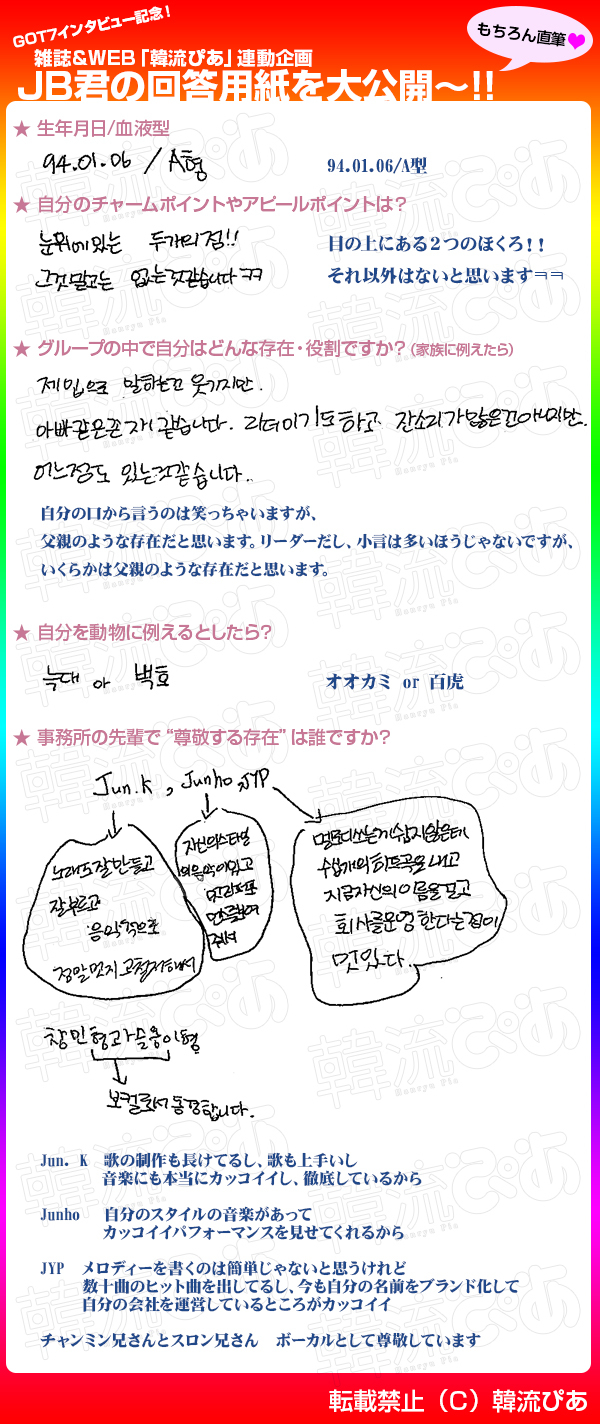 GOT7インタビュー記念!
もちろん直筆
雑誌&WEB「韓流ぴあ」連動企画
JB君の回答用紙を大公開~!!
★ 生年月日/血液型
94.01.06 / A형
94.01.06/A型
★ 自分のチャームポイントやアピールポイントは?
눈위에있는 두개의점!!
目の上にある2つのほくろ!!
그것말고는 없는것같습니다ㅋㅋ
それ以外はないと思いますㅋㅋ
★ グループの中で自分はどんな存在・役割ですか?(家族に例えたら)
제입으로 말하는고 웃기지만.
아빠같은존재같습니다. 리더이기도하고 잔소리가많은건아니지만.
어느정도 있는것같습니다..
自分の口から言うのは笑っちゃいますが、
父親のような存在だと思います。リーダーだし、小言は多いほうじゃないですが、
いくらかは父親のような存在だと思います。
★ 自分を動物に例えるとしたら?
늑대 or 백호
オオカミ or 百虎
★ 事務所の先輩で“尊敬する存在”は誰ですか?
Jun.K , Junho, JYP
노래도잘만들고
잘부르고
음악적으로
정말멋지고철저해서
자신의스타일
의음악이있고
멋진퍼포
먼스를보여
줘서
멜로디쓰는게쉽지않은데
수십개의히트곡을내고
지금자신의이름을걸고
회사를운영한다는점이
멋있다.
창민형과슬옹이형
보컬로서동경합니다.
Jun. K 歌の制作も長けてるし、歌も上手いし
音楽にも本当にカッコイイし、徹底しているから
Junho 自分のスタイルの音楽があって
カッコイイパフォーマンスを見せてくれるから
JYP メロディーを書くのは簡単じゃないと思うけれど
数十曲のヒット曲を出してるし、今も自分の名前をブランド化して
自分の会社を運営しているところがカッコイイ
チャンミン兄さんとスロン兄さん ボーカルとして尊敬しています
転載禁止(C)韓流ぴあ